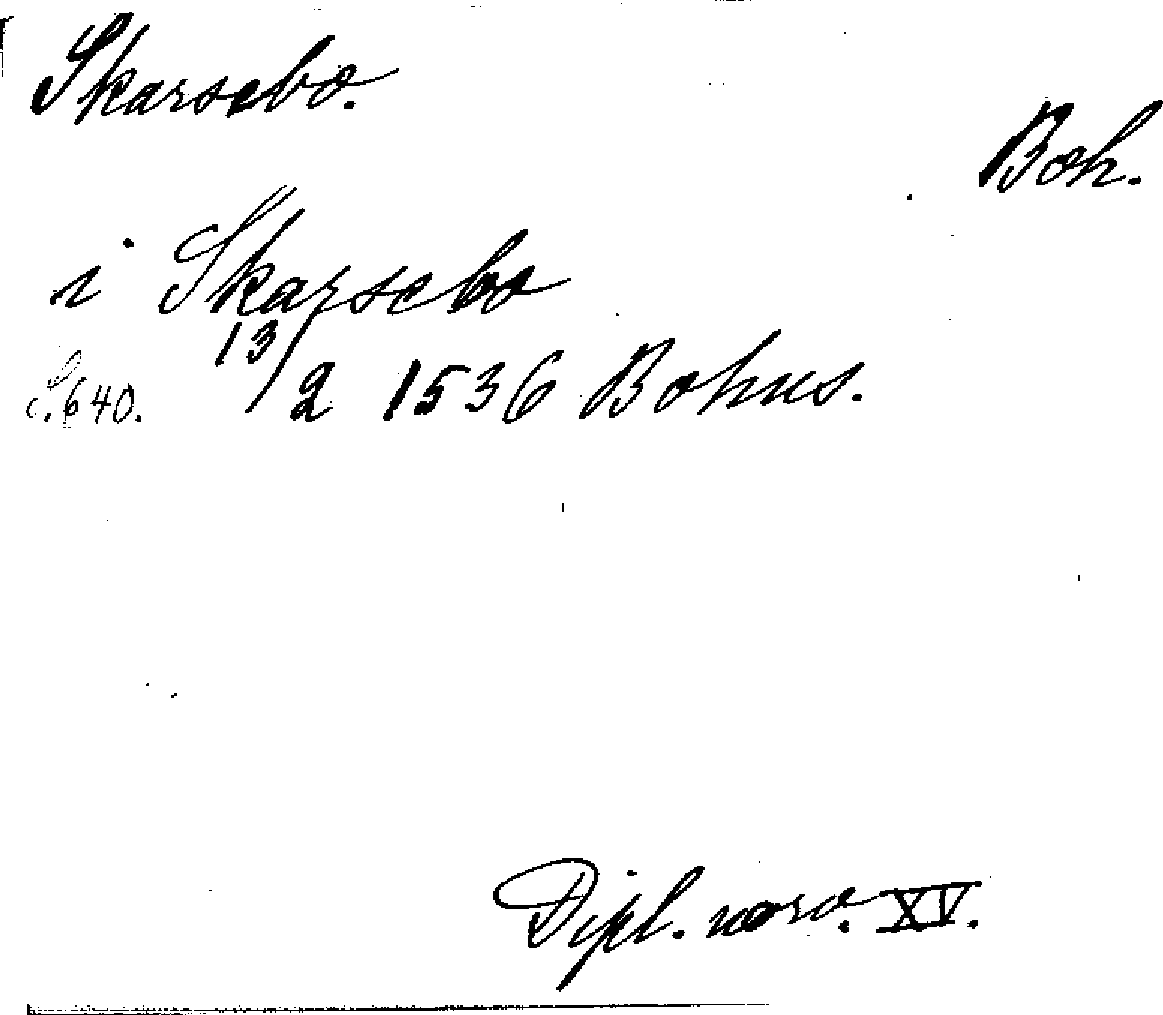 Skarsebo.
Boh.
i Skarsebo
S. 640. 13/2 1536 Bohus.
Dipl. norv. XV.